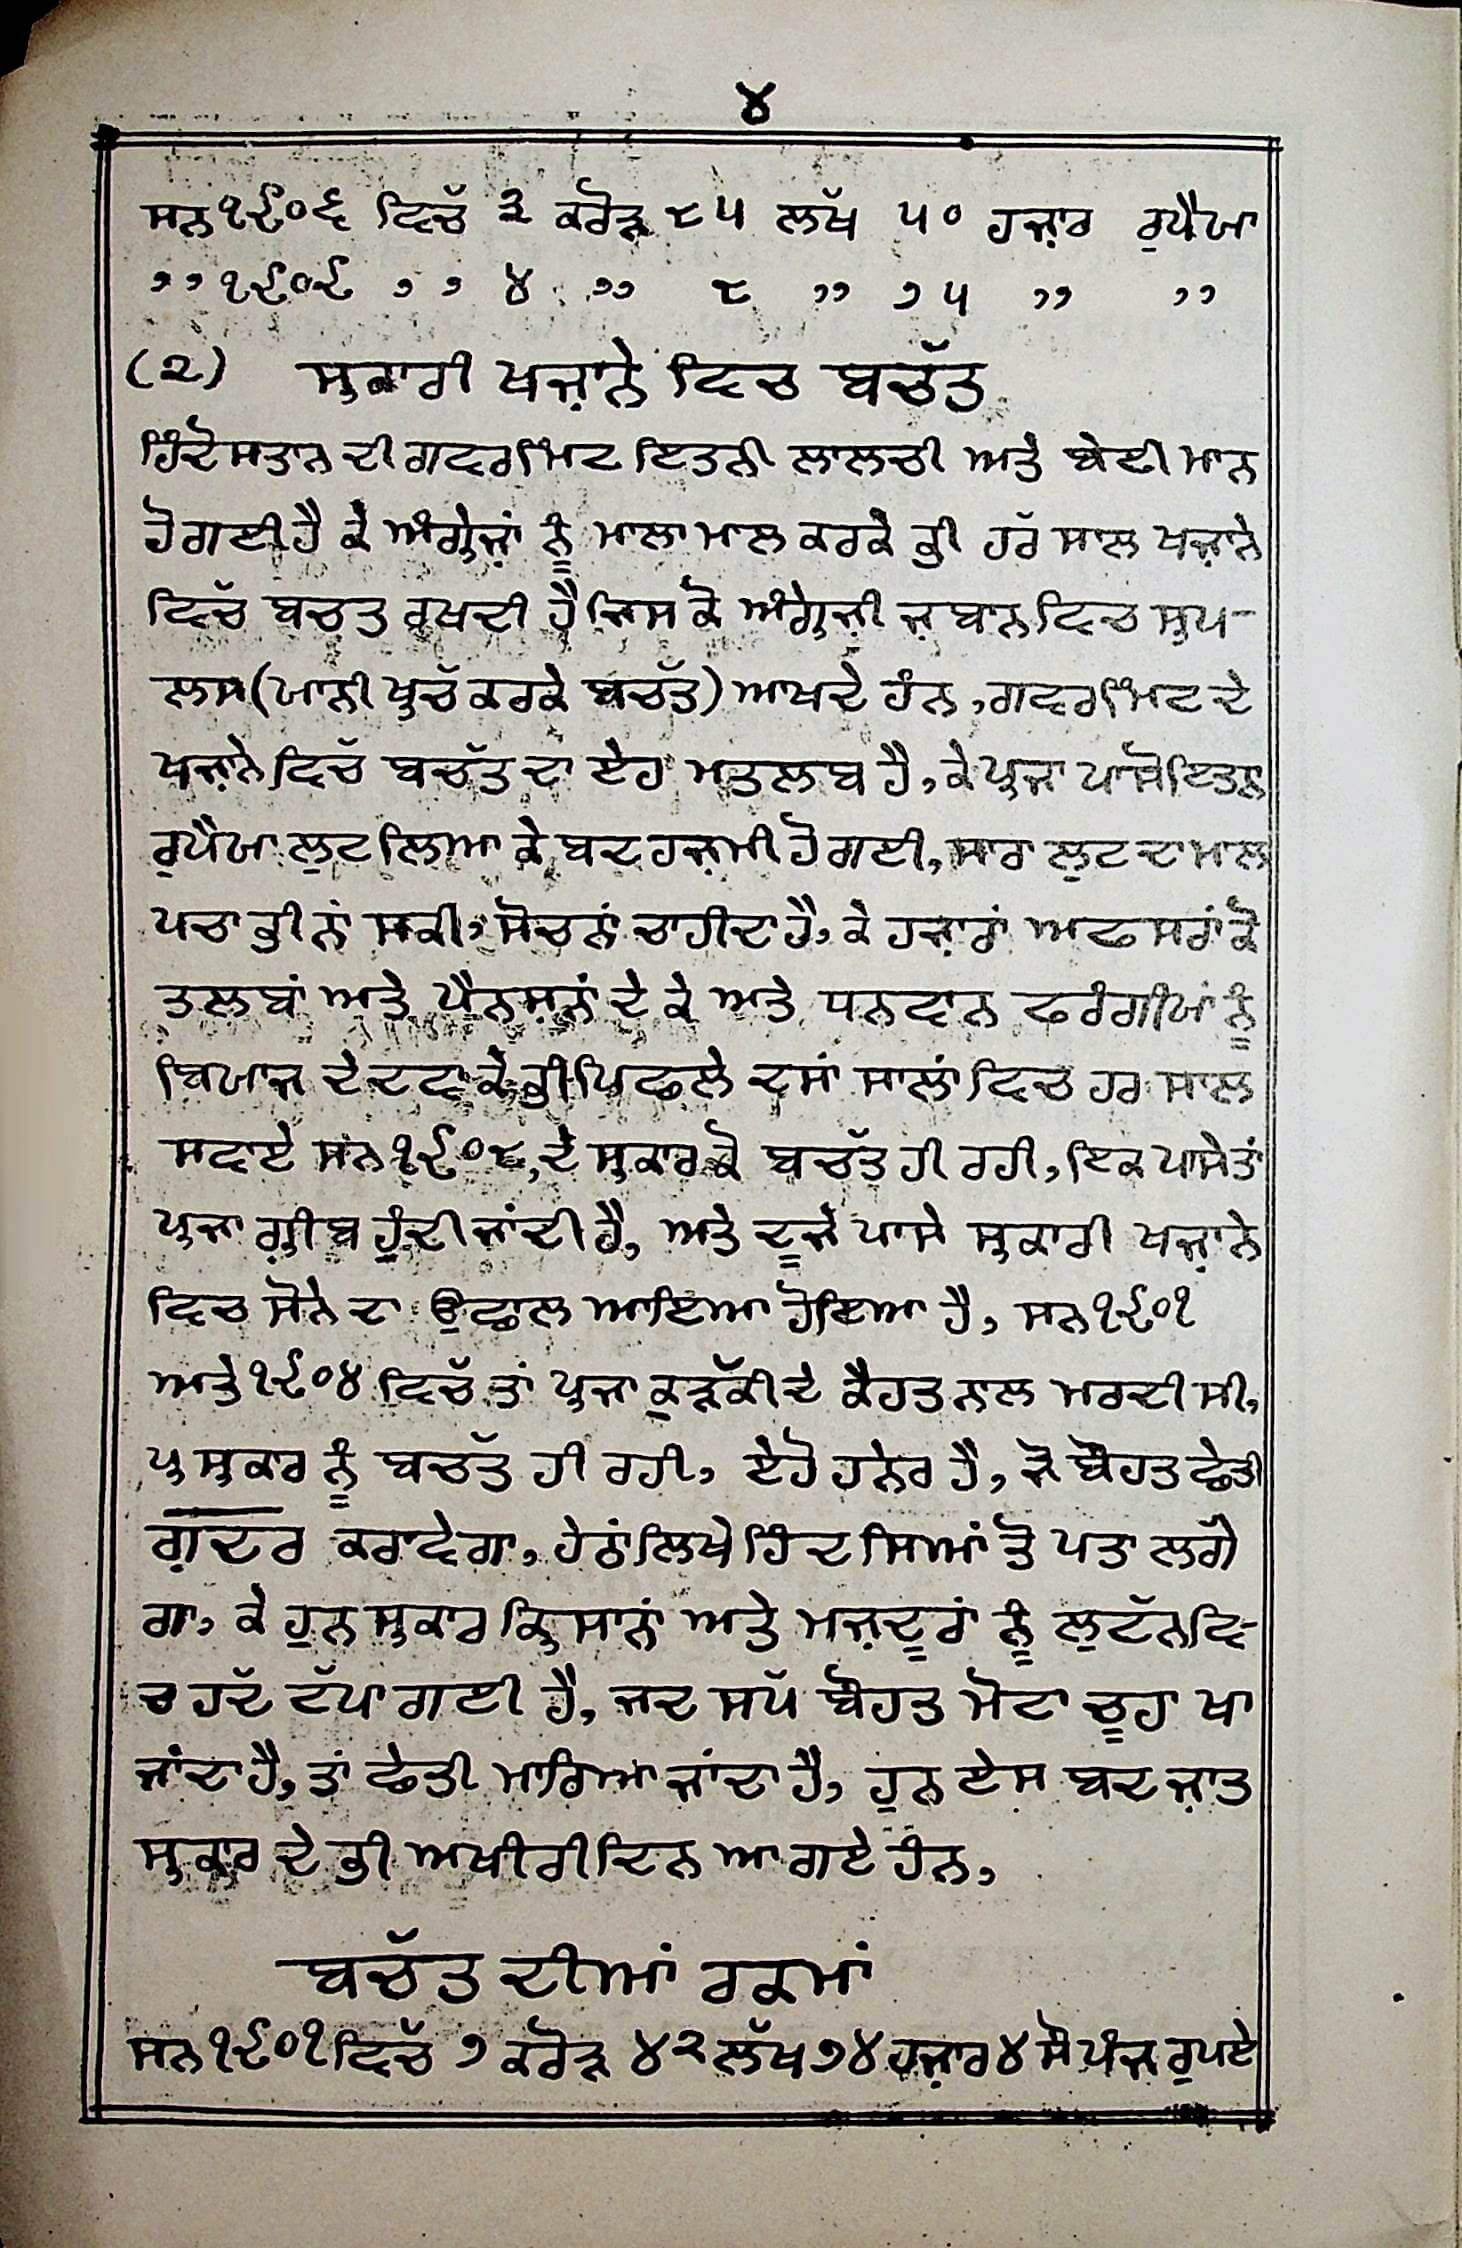 ੪
ਸਨ੧੯੦੬ ਵਿਚੱ ੩ ਕਰੋੜ ੮੫ ਲੱਖ ੫੦ ਹਜ਼ਾਰ ਰੁਪੈਯਾ
,,੧੯੦੯ ,, ੪ ,, ੮ ,, ੭੫ ,, ,,
(੨) ਸ੍ਰਕਾਰੀ ਖਜ਼ਾਨੇ ਵਿਚ ਬਚੱਤ
ਹਿੰਦੋਸਤਾਨ ਦੀ ਗਵਰਮਿੰਟ ਇਤਨੀ ਲਾਲਚੀ ਅਤੇ ਬੇਈਮਾਨ
ਹੋ ਗਈ ਹੈ ਕੇ ਅੰਗ੍ਰੇਜ਼ਾਂ ਨੂੰ ਮਾਲਾ ਮਾਲ ਕਰਕੇ ਭੀ ਹਰ ਸਾਲ ਖਜ਼ਾਨੇ
ਵਿਚੱ ਬਚਤ ਰਖਦੀ ਹੈ ਜਿਸ ਕੋ ਅੰਗ੍ਰੇਜ਼ੀ ਜ਼ਬਾਨ ਵਿਚ ਸ੍ਰਪ-
ਲਸ (ਯਾਨੀ ਖ੍ਰਚੱ ਕਰਕੇ ਬਚੱਤ) ਆਖਦੇ ਹੰਨ, ਗਵਰਮਿੰਟ ਦੇ
ਖਜ਼ਾਨੇ ਵਿਚੱ ਬਚੱਤ ਦਾ ਏਹ ਮਤਲਬ ਹੈ, ਕੇ ਪ੍ਰਜਾ ਪਾਸੋਂ ਇਤਨਾ
ਰੁਪੈਯਾ ਲੁਟ ਲਿਆ ਕੇ ਬਦਹਜ਼ਮੀ ਹੋ ਗਈ, ਸਾਰਾ ਲੁਟ ਦਾ ਮਾਲ
ਪਚਾ ਭੀ ਨਾਂ ਸਕੀ, ਸੋਚਨਾਂ ਚਾਹੀਦਾ ਹੈ, ਕੇ ਹਜ਼ਾਰਾਂ ਅਫਸਰਾਂ ਕੋ
ਤਲਬਾਂ ਅਤੇ ਪੈਨਸ਼ਨਾਂ ਦੇ ਕੇ ਅਤੇ ਧਨਵਾਨ ਫਰੰਗੀਯਾਂ ਨੂੰ
ਬਿਯਾਜ ਦੇ ਦਵਾ ਕੇ ਭੀ ਪਿਛਲੇ ਦਸਾਂ ਸਾਲਾਂ ਵਿਚ ਹਰ ਸਾਲ
ਸਵਾਏ ਸਨ੧੯੦੮, ਦੇ ਸ੍ਰਕਾਰ ਕੋ ਬਚੱਤ ਹੀ ਰਹੀ, ਇਕ ਪਾਸੇ ਤਾਂ
ਪ੍ਰਜਾ ਗ਼੍ਰੀਬ ਹੁੰਦੀ ਜਾਂਦੀ ਹੈ, ਅਤੇ ਦੂਜੇ ਪਾਸੇ ਸ੍ਰਕਾਰੀ ਖਜ਼ਾਨੇ
ਵਿਚ ਸੋਨੇ ਦਾ ਉਛਾਲ ਆਇਆ ਹੋਇਆ ਹੈ, ਸਨ੧੯੦੧
ਅਤੇ੧੯੦੪ ਵਿਚੱ ਤਾਂ ਪ੍ਰਜਾ ਕੁੜੱਕੀ ਦੇ ਕੈਹਤ ਨਾਲ ਮਰਦੀ ਸੀ,
ਪ੍ਰ ਸ੍ਰਕਾਰ ਨੂੰ ਬਚੱਤ ਹੀ ਰਹੀ, ਏਹੋ ਹਨੇਰ ਹੈ, ਜੋ ਬੌਹਤ ਛੇਤੀ
ਗ਼ਦਰ ਕਰਾਵੇਗਾ, ਹੇਠਾਂ ਲਿਖੇ ਹਿੰਦਸਿਆਂ ਤੋਂ ਪਤਾ ਲਗੇ
ਗਾ, ਕੇ ਹੁਨ ਸ੍ਰਕਾਰ ਕ੍ਰਿਸਾਨਾਂ ਅਤੇ ਮਜ਼ਦੂਰਾਂ ਨੂੰ ਲੁਟੱਨ ਵਿ-
ਚ ਹਦੱ ਟੱਪਾ ਗਈ ਹੈ, ਜਦ ਸਪੱ ਬੌਹਤ ਮੋਟਾ ਚੂਹਾ ਖਾ
ਜਾਂਦਾ ਹੈ, ਤਾਂ ਛੇਤੀ ਮਾਰਿਆ ਜਾਂਦਾ ਹੈ, ਹੁਨ ਏਸ ਬਦਜ਼ਾਤ
ਸ੍ਰਕਾਰ ਦੇ ਭੀ ਅਖੀਰੀ ਦਿਨ ਆ ਗਏ ਹੰਨ,
ਬਚੱਤ ਦੀਆਂ ਰਕਮਾਂ
ਸਨ੧੯੦੧ ਵਿਚੱ ੭ ਕਰੋੜ ੪੨ ਲੱਖ ੭੪ ਹਜ਼ਾਰ ੪ ਸੌ ਪੰਜ ਰੁਪਏ